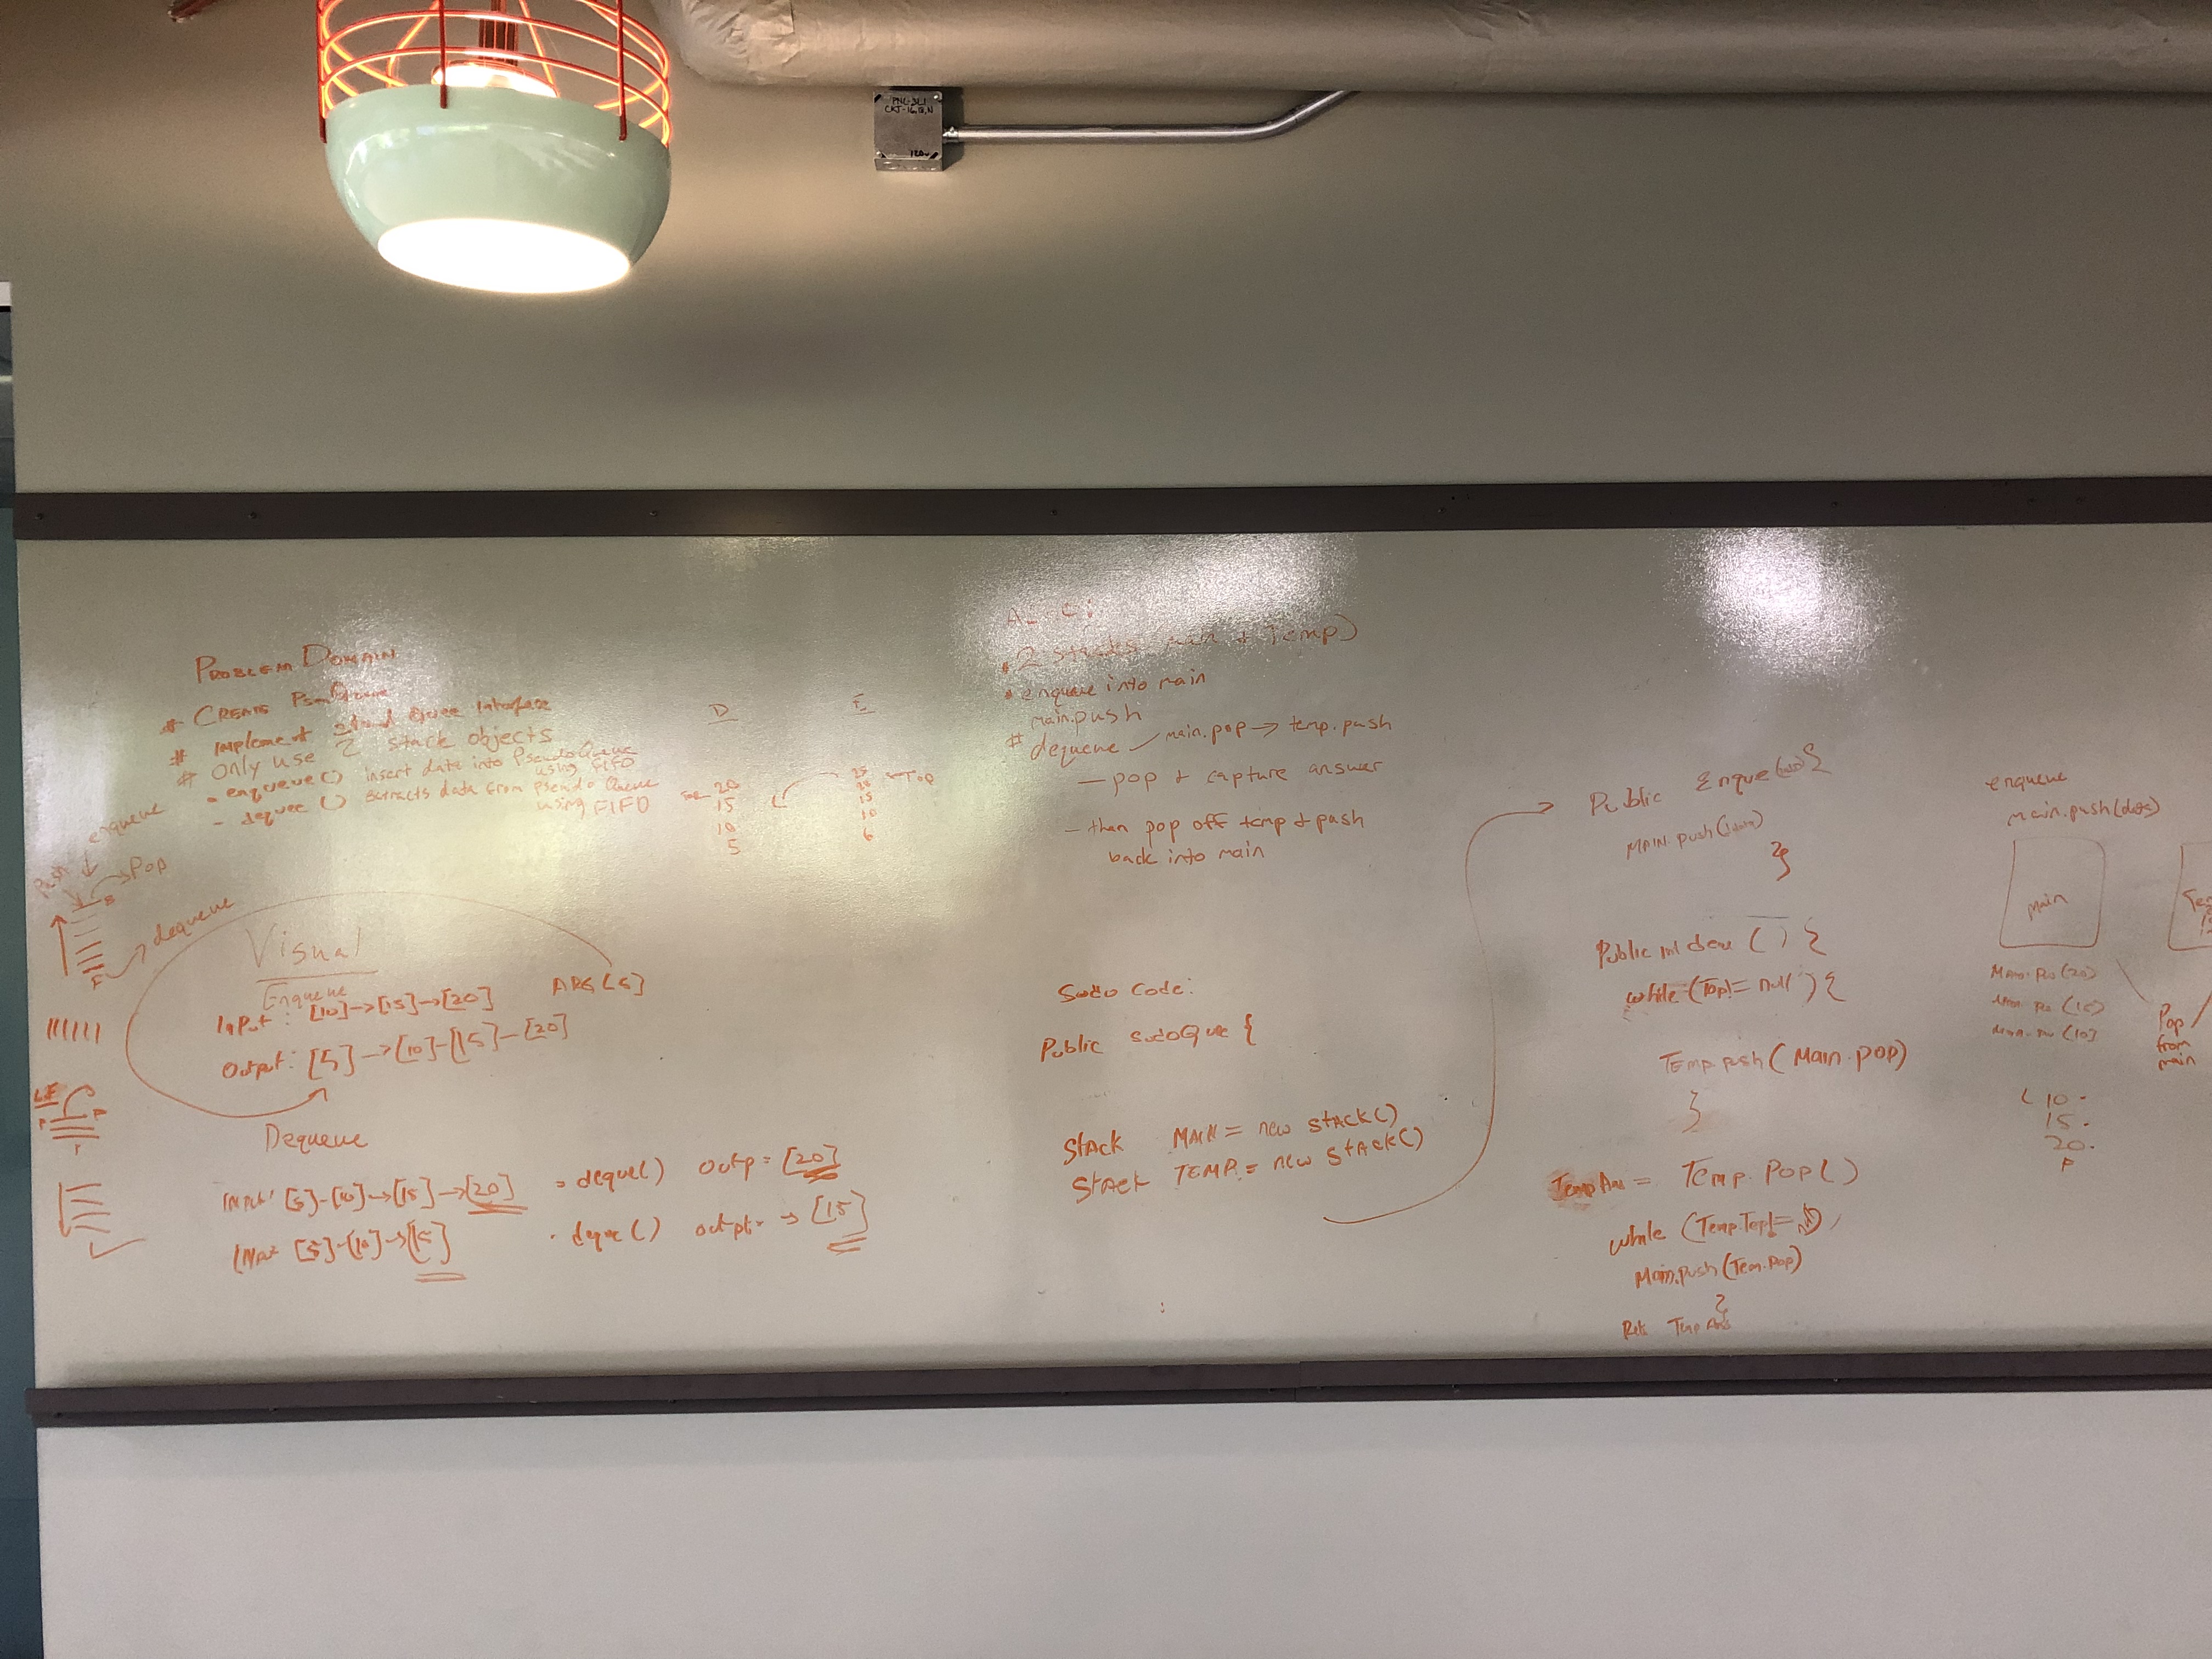 PNL-3L1
CKT-16,18,N
120v
PROBLEM DOMAIN
# CREATE PseudoQueue
# Implement Queue Interface
# only use 2 stack objects
- enqueue() insert data into PseudoQueue
using FIFO
- dequee() extracts data from Pseudo Queue
using FIFO
enqueue
Push
Pop
dequeue
F
Visual
Enqueue
InPut: [10]→[15]→[20]
ARG[5]
Output: [5]→[10]-[15]-[20]
Dequeue
INPut' [5]-[10]→[15]→[20] = deque() outp = [20]
INPut [5]-[10]→[15] . deque() outpt= → [15]
D
20
15
10
5
E
25
20
15
10
6
←TOP
2 stacks main & Temp)
enqueue into main
main.push
# dequeue main.pop → temp.push
— pop & capture answer
— than pop off temp & push
back into main
Sudo Code:
Public sudoQue {
Stack MAIN = new STACK()
Stack TEMP = new STACK()
Public Enque( ){
MAIN.push( )
}
Public int deque () {
while (Top != null) {
TEMP.push(Main.pop)
}
TempAns = Temp.Pop()
while (Temp.Top !=
Main.push(Tem.Pop)
}
Ret Temp Ans
enqueue
main.push(data)
main
Pop
from
main
( 10 -
15 .
20.
P